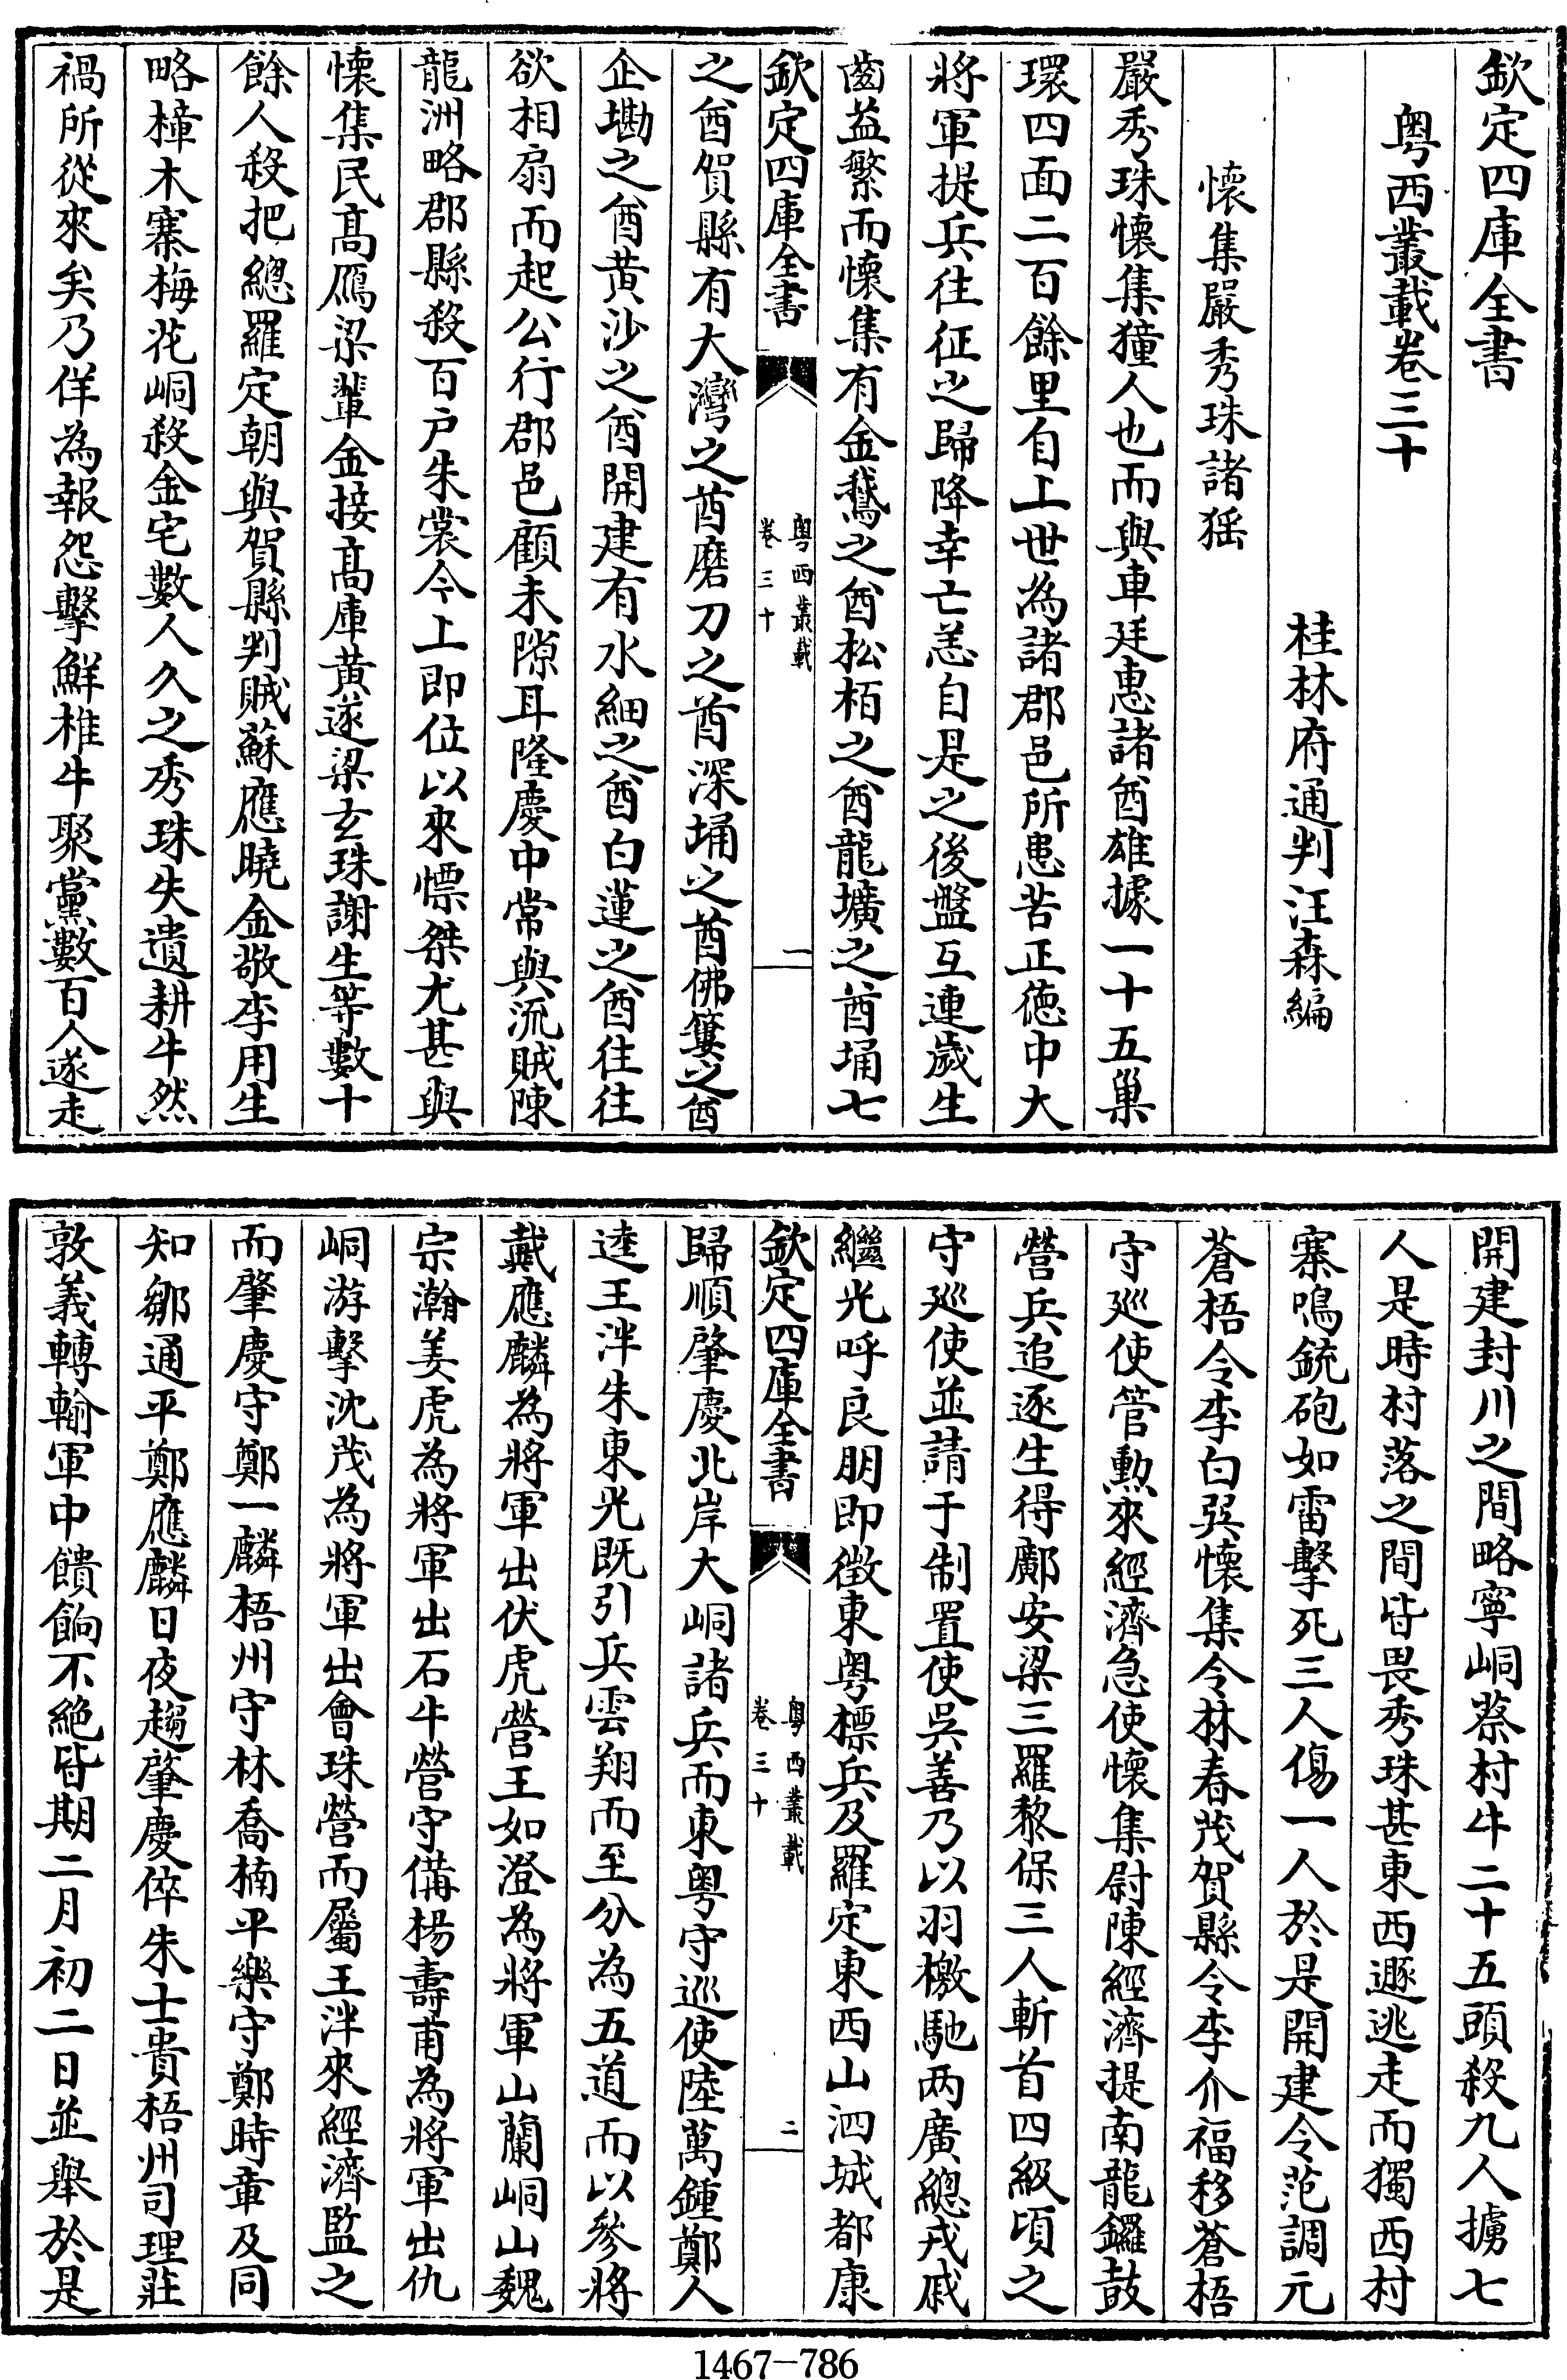 欽定四庫全書
粤西叢載卷三十
桂林府通判汪森編
懷集嚴秀珠諸猺
嚴秀珠懷集獞人也而與車廷惠諸酋雄據一十五巢
環四面二百餘里自上世為諸郡邑所患苦正德中大
將軍提兵往征之歸降幸亡恙自是之後盤互連歲生
齒益繁而懷集有金鵞之酋松栢之酋龍壙之酋埇七
欽定四庫全書
粤西叢載
卷三十
一
之酋賀縣有大灣之酋磨刀之酋深埇之酋佛簍之酋
企墈之酋黄沙之酋開建有水細之酋白蓮之酋往往
欲相扇而起公行郡邑顧未隙耳隆慶中常與流賊陳
龍洲略郡縣殺百户朱裳今上即位以來慓桀尤甚與
懷集民髙鴈梁輩金接髙庫黄遂梁玄珠謝生等數十
餘人殺把總羅定朝與賀縣判賊蘇應曉金敬李用生
略樟木寨梅花峒殺金宅數人久之秀珠失遺耕牛然
禍所從來矣乃佯為報怨擊鮮椎牛聚黨數百人遂走
開建封川之間略寧峒蔡村牛二十五頭殺九人擄七
人是時村落之間皆畏秀珠甚東西遯逃走而獨西村
寨鳴銃砲如雷擊死三人傷一人於是開建令范調元
蒼梧令李白巽懷集令林春茂賀縣令李介福移蒼梧
守廵使管勲來經濟急使懷集尉陳經濟提南龍鑼鼓
營兵追逐生得鄺安梁三羅黎保三人斬首四級頃之
守廵使並請于制置使吳善乃以羽檄馳两廣總戎戚
繼光呼良朋即徴東粤標兵及羅定東西山泗城都康
欽定四庫全書
粤西叢載
卷三十
二
歸順肇慶北岸大峒諸兵而東粤守巡使陸萬鍾鄭人
逵王泮朱東光既引兵雲翔而至分為五道而以參將
戴應麟為將軍出伏虎營王如澄為將軍山蘭峒山魏
宗瀚姜虎為將軍出石牛營守備楊壽甫為將軍出仇
峒游擊沈茂為將軍出會珠營而屬王泮來經濟監之
而肇慶守鄭一麟梧州守林喬楠平樂守鄭時章及同
知鄒通平鄭應麟日夜趨肇慶倅朱士貴梧州司理莊
敦義轉輸軍中饋餉不絶皆期二月初二日並舉於是
1467-786